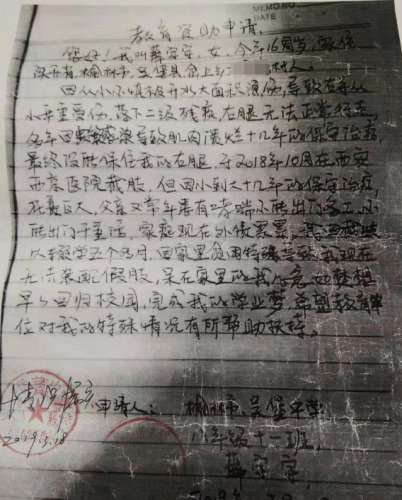 MEMO NO.
DATE
教育资助申请
您好！我叫薛安安，女，今年16周岁，家住
陕西省，榆林市，吴堡县寇上乡 村人。
因从小不慎被开水大面积烫伤，导致右手从
小严重受伤，落下二级残疾，右腿无法正常行走，
多年因 导致肌肉溃烂十几年的保守治疗，
最终没能保住我的右腿，于2018年10月在西安
西京医院截肢，但因小到大十几年的保守治疗，
花费巨大，父亲又常年患有 不能出门务工，
能出门干重活，家庭现在外债累累，我因截肢
以辍学五个多月，因家里贫困特殊导致我现在
无法装配假肢，呆在家里的我 想
早点回归校园，完成我的学业梦，希望教育单
位对我的特殊情况有所帮助扶持。
情况属实
申请人：榆林市，吴堡中学，
2019.3.18
八年级十一班，
薛安安，
2019